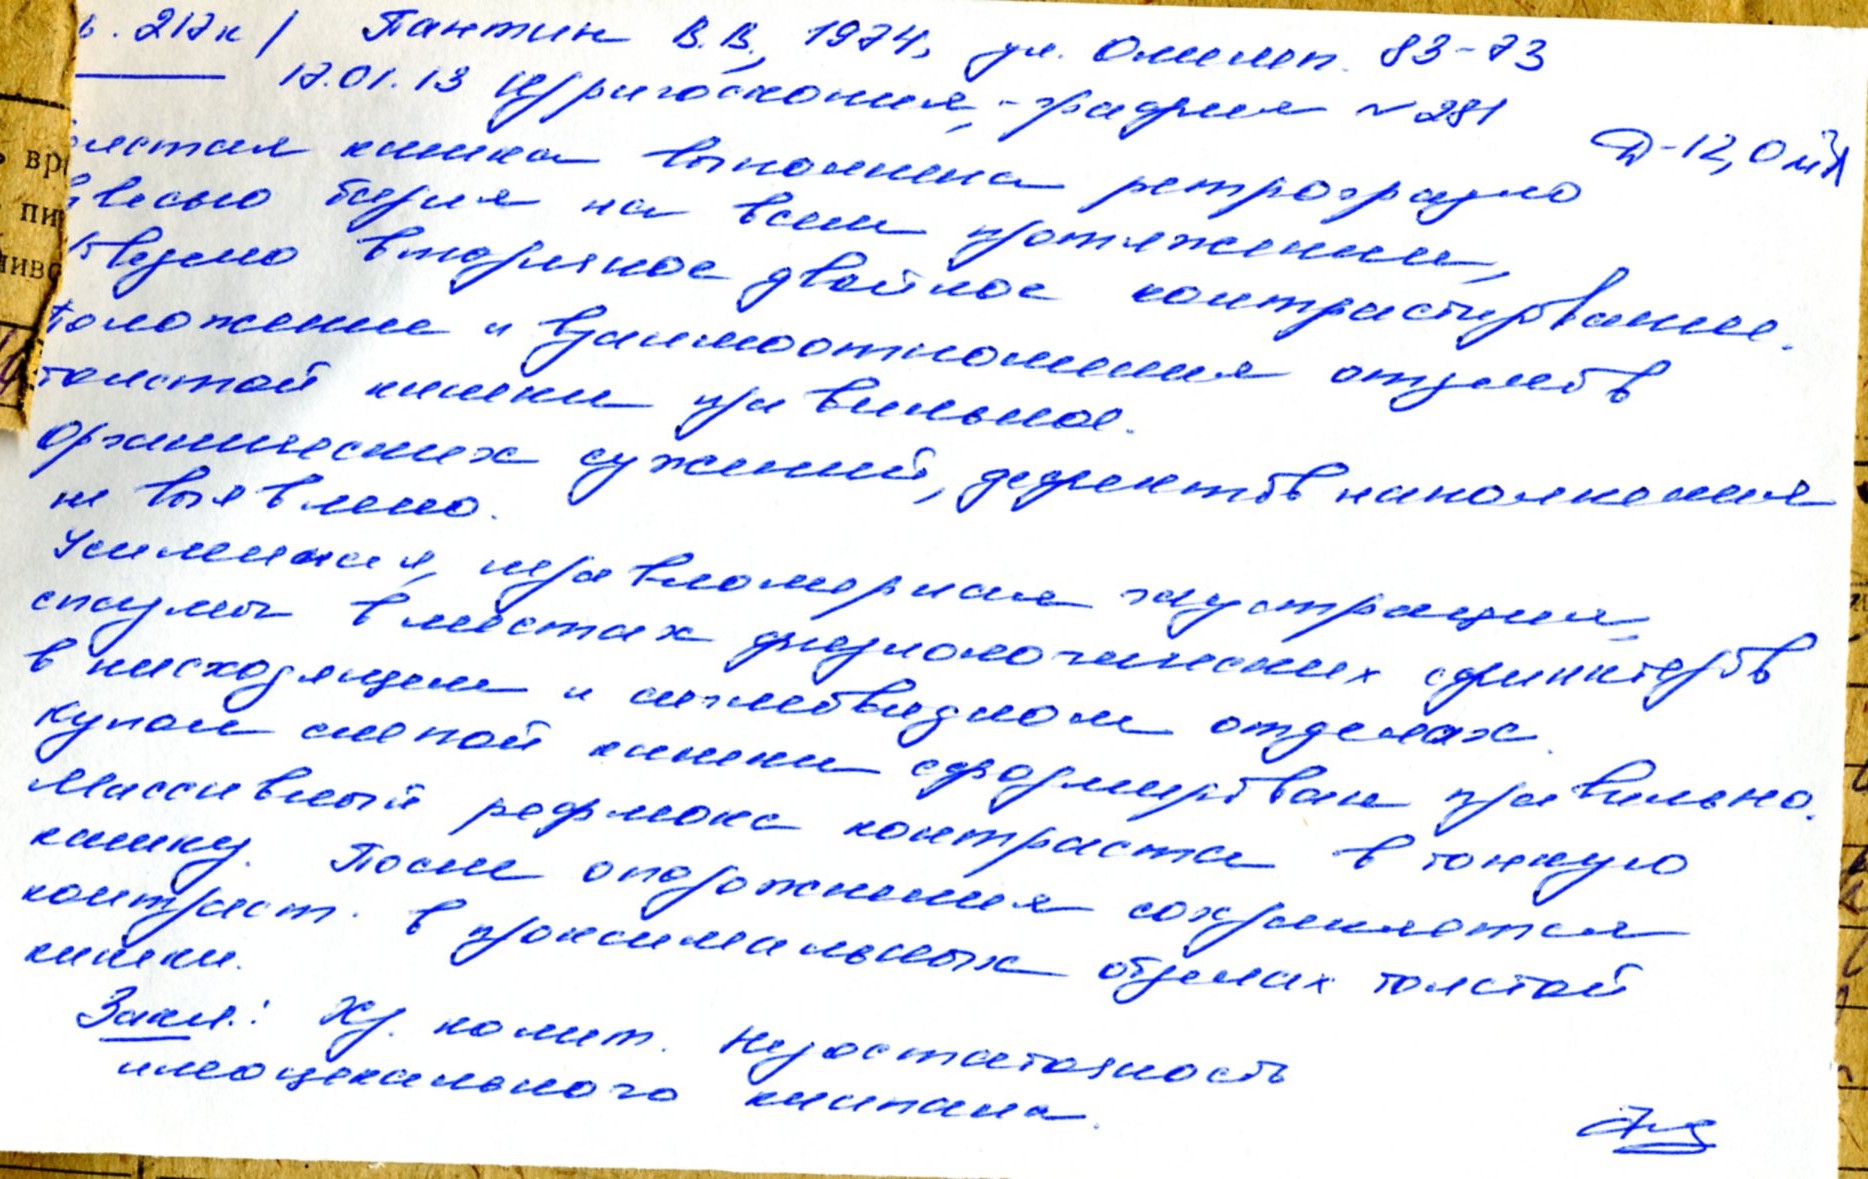 217к / Пантин В.В, 1974, ул. Олимп. 83-73
17.01.13 Ирригоскопия, -графия № 281
Д-12,0 мЗв
олстая кишка выполнена ретроградно
взвесью бария на всем протяжении,
введено вторичное двойное контрастирование.
Положение и взаимоотношения отделов
толстой кишки правильное.
Органических сужений, дефектов наполнения
не выявлено.
Усиленная, неравномерная гаустрация,
спазмы в местах физиологических сфинктеров
в нисходящем и сигмовидном отделах.
Купол слепой кишки сформирован правильно.
Массивный рефлюкс контраста в тонкую
кишку. После опорожнения сохраняется
контраст в проксимальных отделах толстой
кишки.
Закл.: Хр. колит. Недостаточность
илеоцекального клапана.
вр
пи
ив